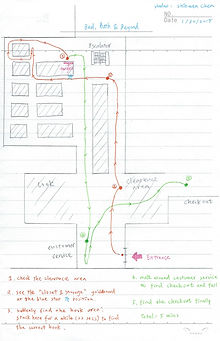 Visitor: Shihwen Chen
Bed, Bath & Beyond
NO.
Date 1/20/2015
Escalator
clearance area
Cook
check out
customer service
Entrance
1. check the clearance area
2. see the "closet & storage" guideboard
at the blue star position
3. suddenly find the hook area
stuck here for a while to find
the correct hook.
4. walk around customer service
to find checkout and fail
5. find the checkout finally
Total: 5 mins